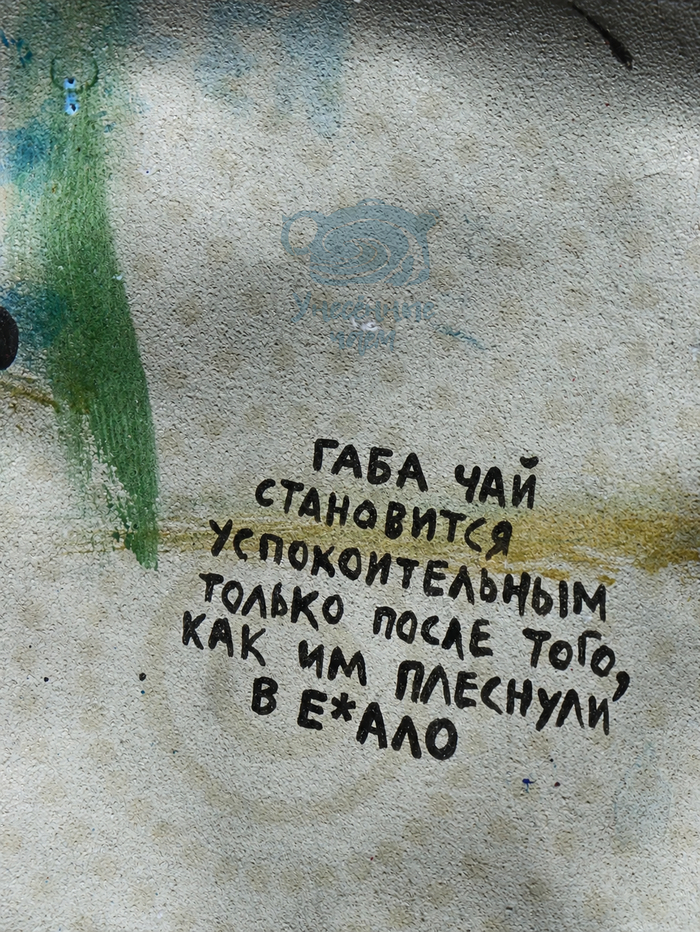 ГАБА ЧАЙ
СТАНОВИТСЯ
УСПОКОИТЕЛЬНЫМ
ТОЛЬКО ПОСЛЕ ТОГО,
КАК ИМ ПЛЕСНУЛИ
В Е*АЛО